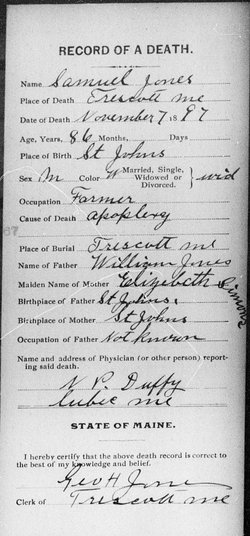 RECORD OF A DEATH.
Name Samuel Jones
Place of Death Trescott me
Date of Death November 7 1897
Age, Years, 86 Months, Days
Place of Birth St Johns
Sex M Color W Married, Single, Widowed or Divorced. } wid
Occupation Farmer
Cause of Death apoplexy
Place of Burial Trescott me
Name of Father William Jones
Maiden Name of Mother Elizabeth
Birthplace of Father St Johns.
Birthplace of Mother St Johns
Occupation of Father Not known
Name and address of Physician (or other person) report-
ing said death.
N. P. Duffy
Lubec me
STATE OF MAINE.
I hereby certify that the above death record is correct to
the best of my knowledge and belief.
Geo H Jones
Clerk of Trescott me